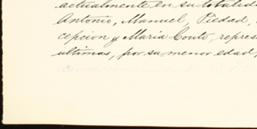 actualmente en su totalid
Antonio, Manuel, Piedad,
cepcion y Maria Couto, repres
ultimas, por su menor edad,